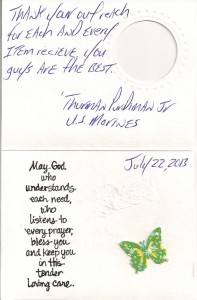 THANK your out reach
for EACH AND EVERY
ITEM RECIEVE, YOU
guys ARE the BEST.
THURMAN Jr
U.S. MARINES
July 22, 2013
May God,
who
understands
each need,
who
listens to
every prayer,
bless you
and keep you
in His
tender
Loving care.